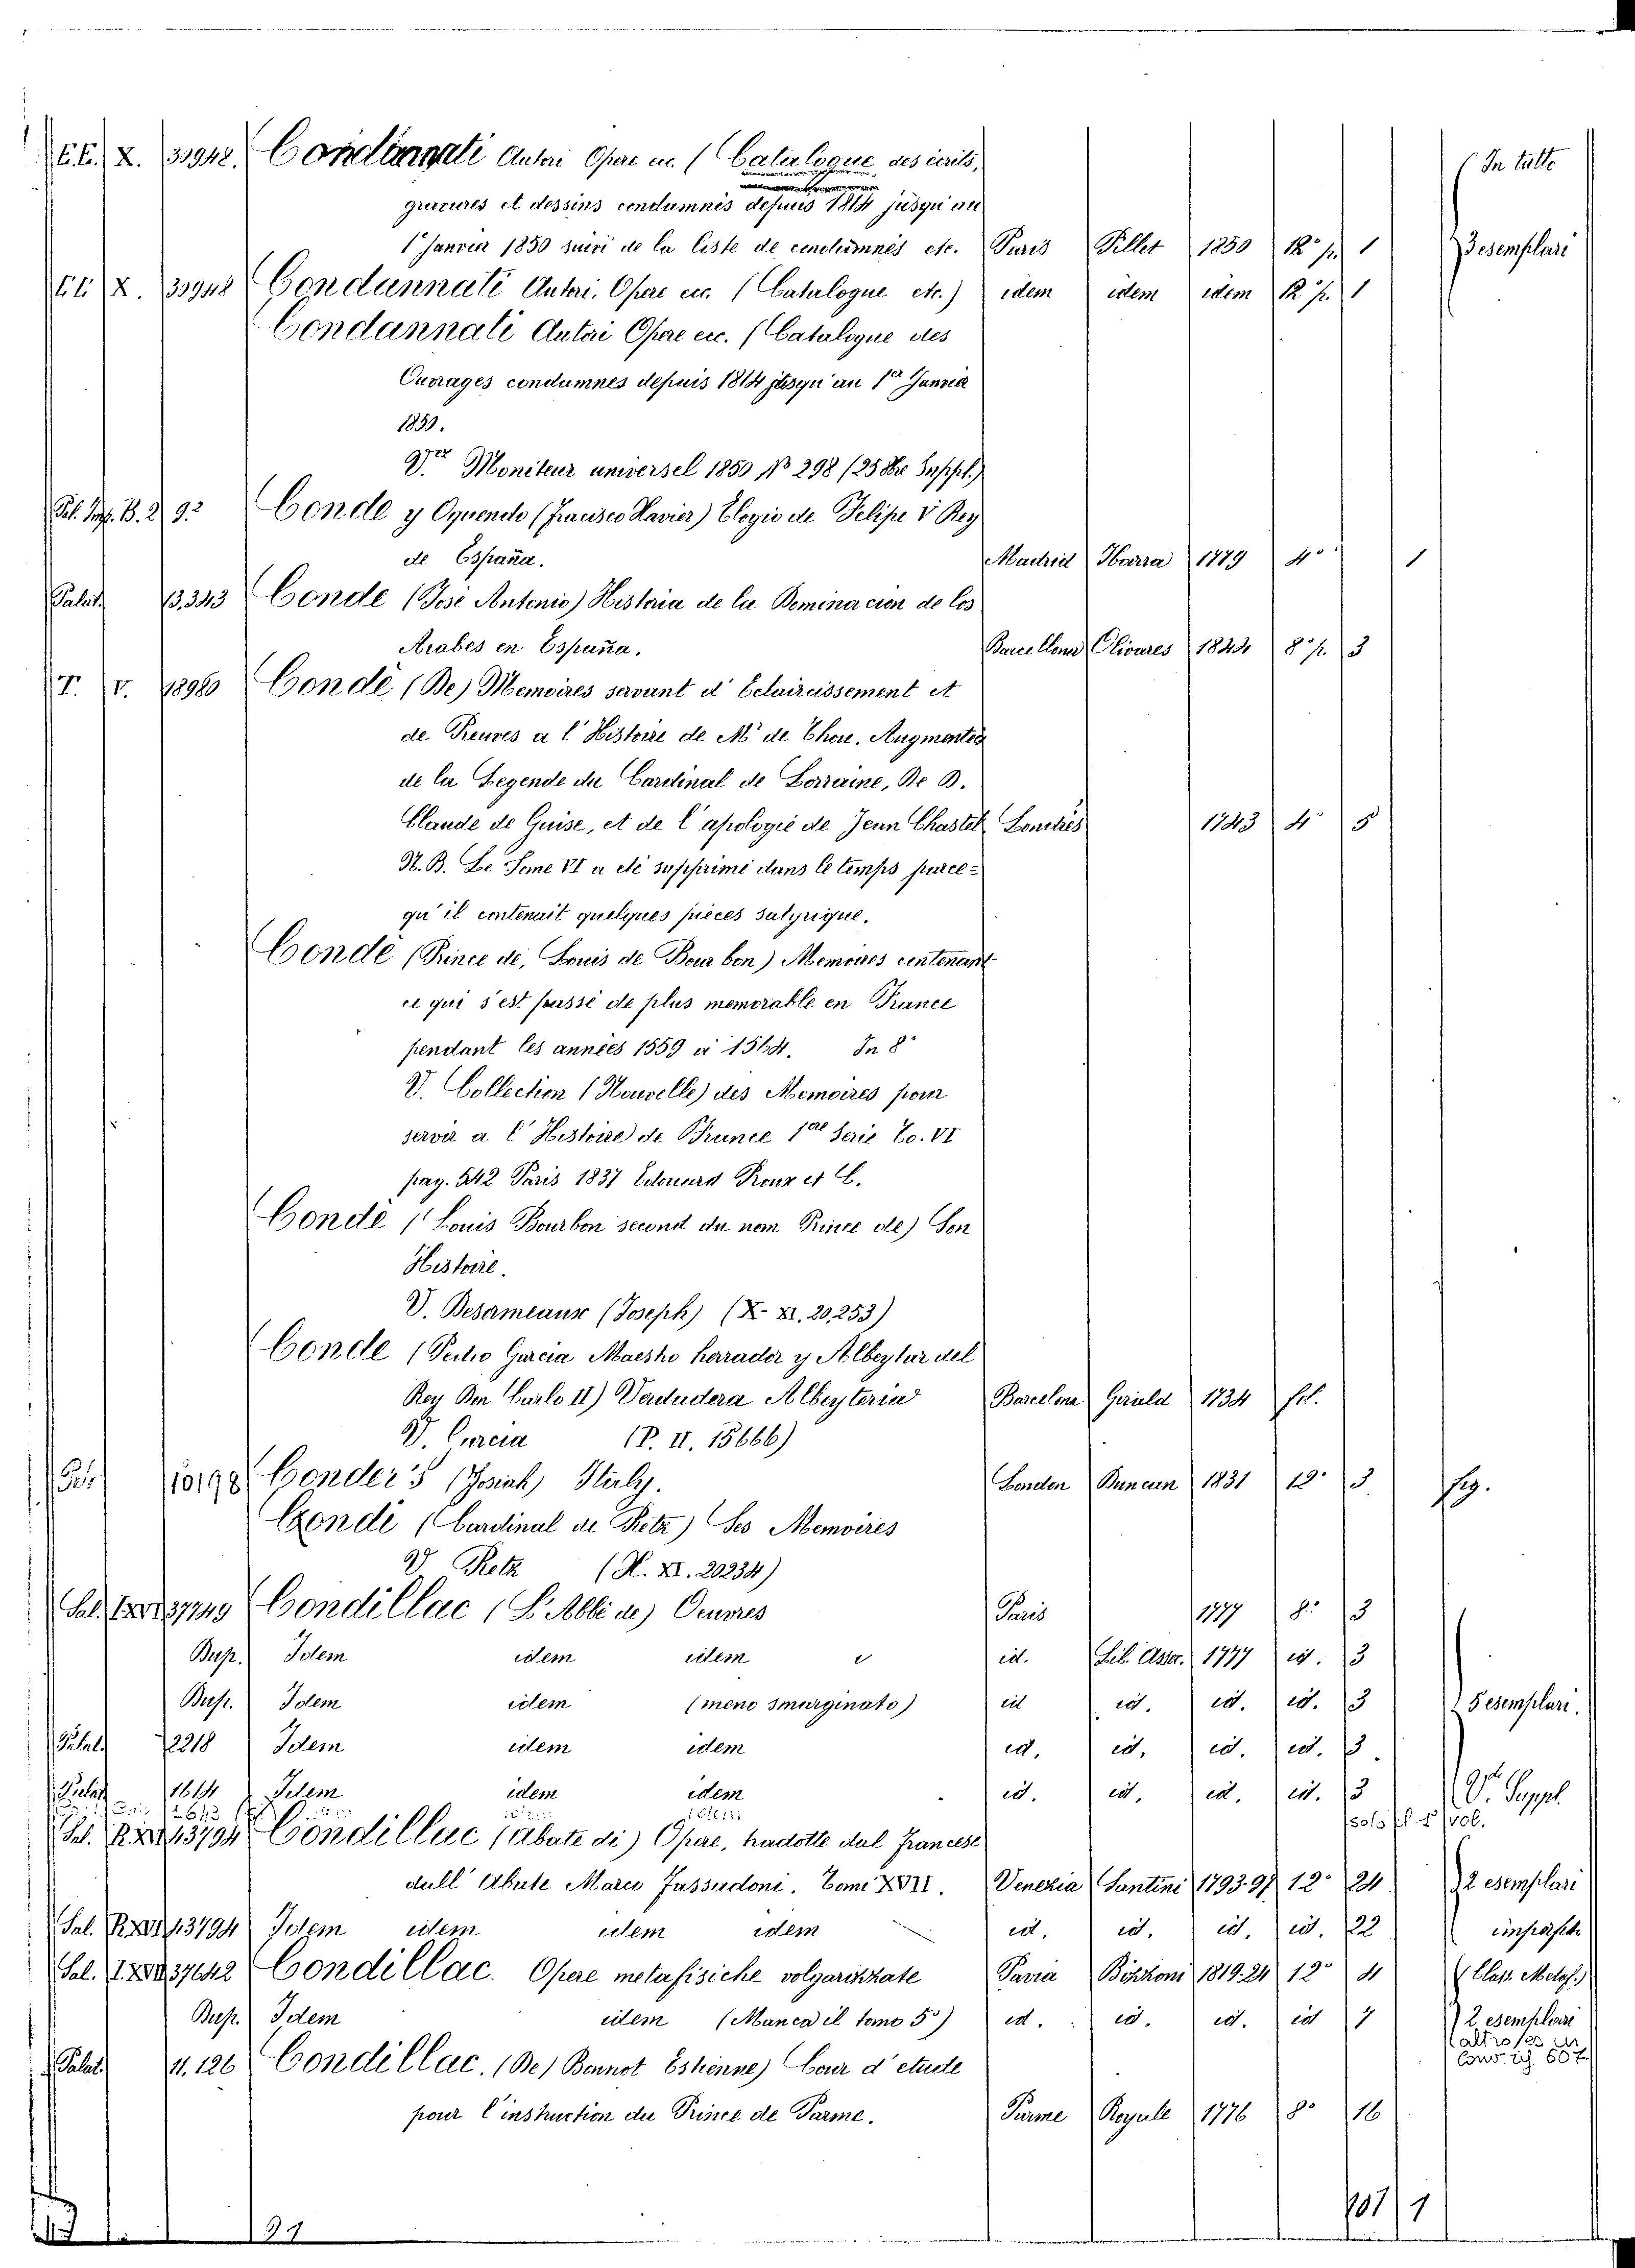 EE. X. 33948. Condannati Autori Opere ecc. (Catalogue des écrits, (In tutto
gravures et dessins condamnés depuis 1814 jusqu'au
1 Janvier 1850 suivi de la liste de condamnés etc. Paris Pillet 1850 12º p. 1 3 esemplari
EE X. 33948 Condannati Autori. Opere ecc. (Catalogue etc.) idem idem idem 12 p. 1
Condannati Autori Opere ecc. (Catalogue des
Ouvrages condamnes depuis 1814 jusqu'au 1er Janvier
1850.
Ver Moniteur universel 1850 Nº 298 (25 8bre Suppl.)
B. 2 9.2 Conde y Oquendo (Francisco Xavier) Elogio de Felipe V Rey
de España. Madrid Ibarra 1779 4º 1
Palat. 13,343 Conde (José Antonio) Historia de la Dominacion de los
Arabes en España. Barcellona Olivares 1844 8º p. 3
T. V. 18980 Condé (De) Memoires servant d'Eclaircissement et
de Preuves a l'Histoire de Mr de Thou. Augmentée
de la Legende du Cardinal de Lorraine, De D.
Claude de Guise, et de l'apologie de Jean Chastel Londres 1743 4º 5
N.B. Le Tome VI a été supprimé dans le temps parce=
qu'il contenait quelques pièces satyrique.
Condé (Prince de, Louis de Bourbon) Memoires contenant
ce qui s'est passé de plus memorable en France
pendant les années 1559 à 1564. In 8º
V. Collection (Nouvelle) des Memoires pour
servir a l'Histoire de France 1ere Serie To. VI
pag. 542 Paris 1837 Edouard Proux et C.
Condé (Louis Bourbon second du nom Prince de) Son
Histoire.
V. Desormeaux (Joseph) (X. XI. 20,253)
Conde (Pedro Garcia Maestro herrador y Albeytar del
Rey Don Carlo II) Verdadera Albeyteria Barcelona Girald 1734 fol.
V. Garcia (P. II. 15666)
10198 Conder's (Josiah) Italy. London Duncan 1831 12º 3 fig.
Condi (Cardinal de Retz) Ses Memoires
V Retz (H. XI. 20234)
Sal. 37749 Condillac (L'Abbé de) Oeuvres Paris 1777 8º 3
Dup. Idem idem idem id. Lib. Assoc. 1777 id. 3
Dup. Idem idem (meno smarginato) id id. id. id. 3 5 esemplari.
Palat. 12218 Idem idem idem id. id. id. id. 3
Palat. 1614 Idem idem idem id. id. id. id. 3 V. Suppl.
solo il 1º vol.
Sal. R. XVI 13794 Condillac (Abate di) Opere, tradotte dal francese
dall'Abate Marco Fassadoni. Tomi XVII. Venezia Santini 1793-97 12º 24 2 esemplari
Sal. R XVI 13794 Idem idem idem idem id. id. id. id. 22
Sal. 37642 Condillac. Opere metafisiche volgarizzate Pavia Bizzoni 1819-24 12º 4 (Class Metaf.)
Dup. Idem idem (Manca il tomo 5º) id. id. id. id 7 2 esemplari
altro es in
607
Palat. 11.126 Condillac. (De) Bonnot Estienne) Cour d'etude
pour l'instruction du Prince de Parme. Parme Royale 1776 8º 16
107 1